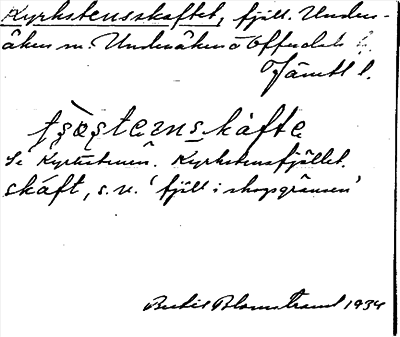 Kyrkstensskaftet, fjäll. Under-
åkers sn. Undersåkers o Offerdals
Jämtl l.
tʂøʂtensskáfte
Se Kyrkstenen. Kyrkstensfjället.
skáft, s. n. 'fjäll i skogsgränsen'
Bertil Blomstrand 1934